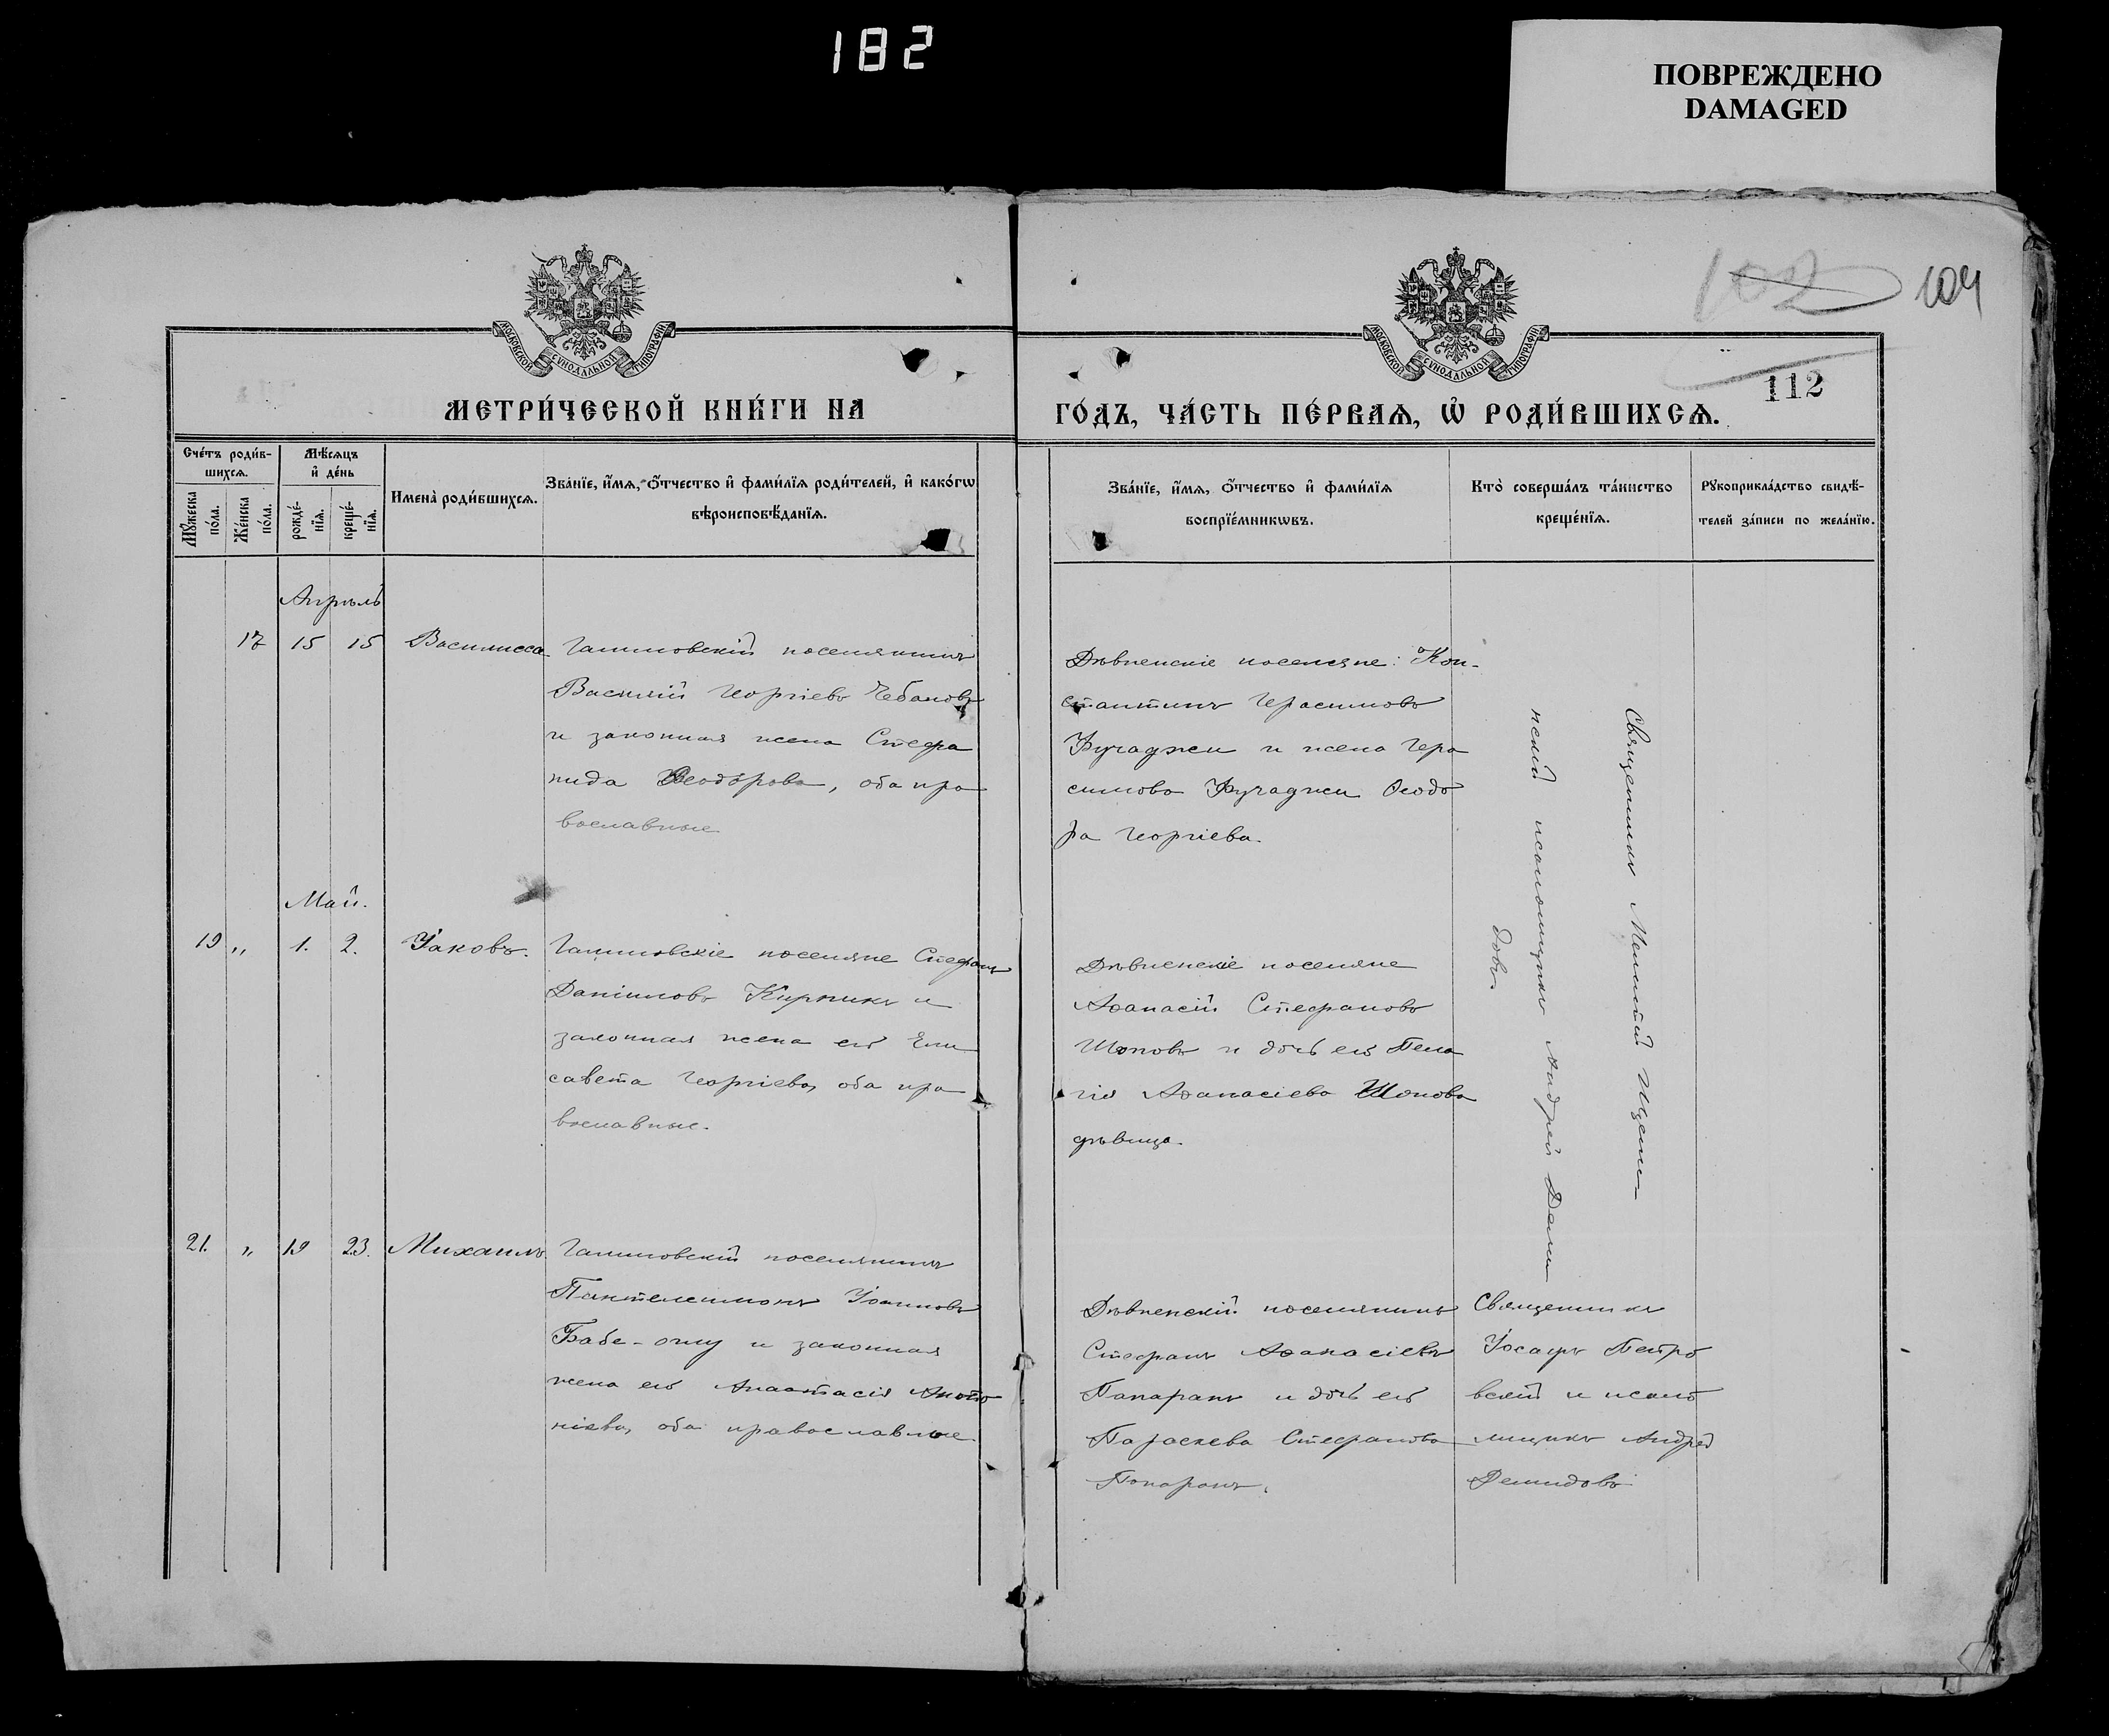 182
ПОВРЕЖДЕНО
DAMAGED
102 104
112
МОСКОВСКОЙ СѴНОДАЛЬНОЙ ТИПОГРАФІИ
МОСКОВСКОЙ СѴНОДАЛЬНОЙ ТИПОГРАФІИ
МЕТРИ́ЧЕСКОЙ КНИ́ГИ НА
ГО́ДЪ, ЧА́СТЬ ПЕ́РВАѦ, Ѡ РОДИ́ВШИХСѦ.
Сче́тъ роди́в-
шихсѧ.
Мꙋжеска по́ла.
Же́нска по́ла.
Мѣ́сѧцъ и де́нь
рожде́-
нїѧ.
креще́-
нїѧ.
Имена̀ роди́вшихсѧ.
Зва́нїе, и́мѧ, о́тчество и фами́лїѧ роди́телей, и како́гѡ
вѣроисповѣ́данїѧ.
Зва́нїе, и́мѧ, о́тчество и фами́лїѧ
воспрїе́мникѡвъ.
Кто̀ соверша́лъ та́инство
креще́нїѧ.
Рꙋкоприкла́дство свидѣ́-
телей за́писи по жела́нїю.
Апрѣль
17 15 15 Василисса
Василій Георгіевъ Чебановъ
и законная жена Стефа
нида Ѳеодорова, оба пра
вославные
Дѣвненскіе поселяне: Кон-
стантинъ Герасимовъ
Фучаджи и жена Гера
симова Фучаджи Ѳеодо
ра Георгіева.
Священникъ Мелетій
нскій псаломщикъ Андрей Деми
довъ.
Май.
19 „ 1. 2. Іаковъ.
поселяне Стефанъ
Даніиловъ Кирникъ и
законная жена его Ели
савета Георгіева, оба пра
вославные.
Дѣвненскіе поселяне
Аѳанасій Стефановъ
Шоповъ и дочь его Пела
гія Аѳанасіева Шопова
дѣвица.
21. „ 19 23. Михаилъ
поселянинъ
Пантелеимонъ Іоанновъ
Бабе-оглу и законная
жена его Анастасія Анто
ніева, оба православные.
Дѣвненскій поселянинъ
Стефанъ Аѳанасіевъ
Папаранъ и дочь его
Параскева Стефанова
Папаранъ.
Священникъ
Іосафъ Петро
вскій и псало
мщикъ Андрей
Демидовъ